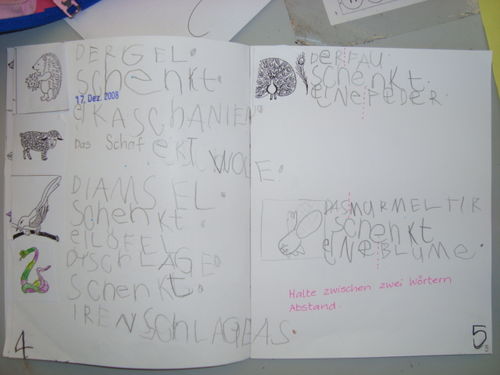 DERGEL
schenkt
17. Dez. 2008
KASCHANIEN
Das Schaf
WOLE.
DIAMSEL
schenkt
EILÖFEL
DISCHLAGE
schenkt
IRENSCHLAGEAS.
4
DERFAU
schenkt
eineFEDER.
DASMURMELTIR
schenkt
eNeBLUMe.
Halte zwischen zwei Wörtern
Abstand.
5